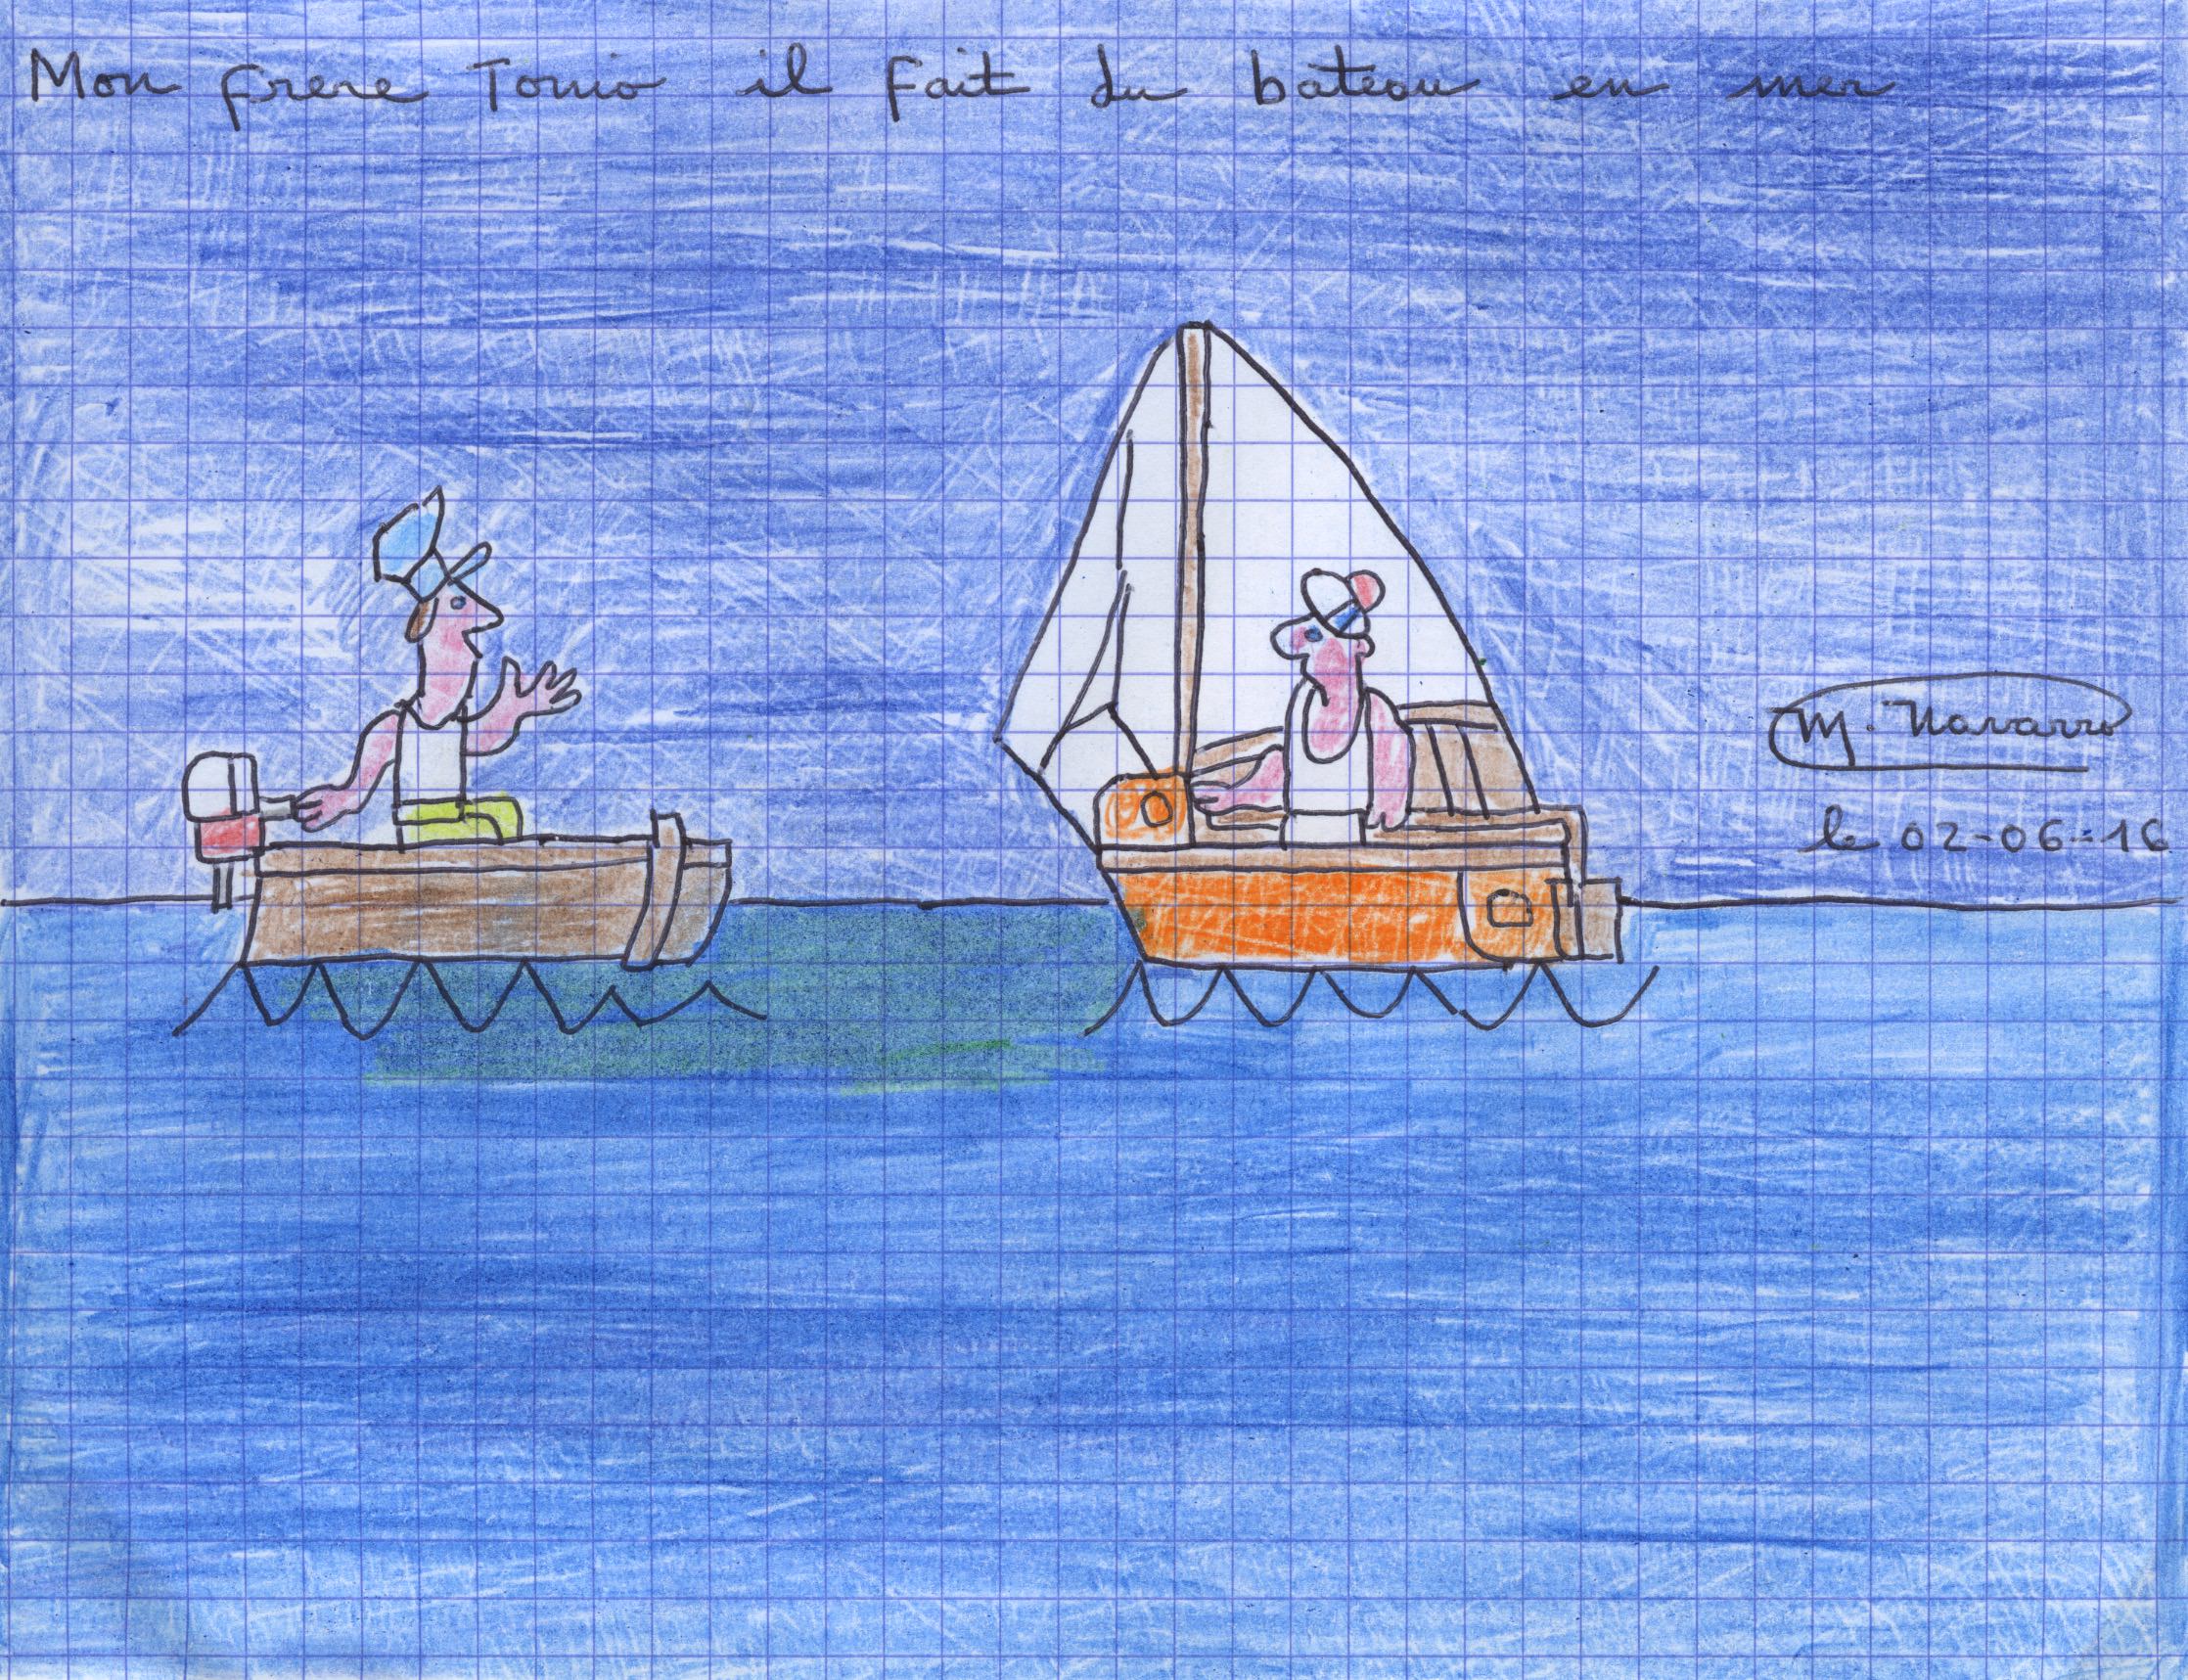 Mon frere Tonio il fait du bateau en mer
M. Navarro
le 02-06-16